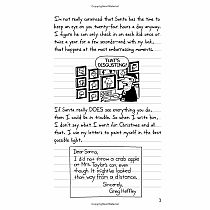 I'm not really convinced that Santa has the time to
keep an eye on you twenty-four hours a day anyway.
I figure he can only check in on each kid once or
twice a year for a few seconds-and with my luck,
that happens at the most embarrassing moments.
THAT'S
DISGUSTING!
If Santa really DOES see everything you do,
then I could be in trouble. So when I write him,
I don't say what I want for Christmas and all
that. I use my letters to paint myself in the best
possible light.
Dear Santa,
I did not throw a crab apple
at Mrs. Taylor's car, even
though it might've looked
that way from a distance.
Sincerely,
Greg Heffley
3